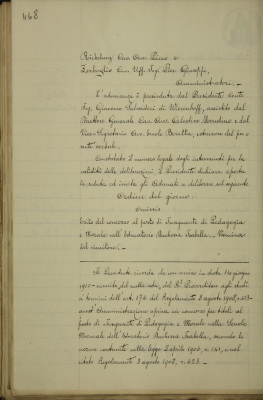 468
Cav. Avv. Piero e
Cav. Uff. Ing. Pier Giuseppe,
Amministratori. -
L'adunanza è presieduta dal Presidente Conte
Ing. Giacomo Salvadori di Wiesenhoff, assistito dal
Direttore Generale Cav. Avv. Celestino e dal
Vice-Segretario Avv. Baretta, estensore del pre
sente verbale.
Constatato il numero legale degli intervenuti per la
validità delle deliberazioni il Presidente dichiara aperta
la seduta ed invita gli adunati a deliberare sul seguente
Ordine del giorno:
Omissis
Esito del concorso al posto di Insegnante di Pedagogia
e Morale nell'Educatorio Duchessa Isabella. - Nomina
del vincitore. -
Il Presidente ricorda che con avviso in data 14 giugno
1910 munito del visto del R° Provveditore agli studi
a termini dell'art. 176 del Regolamento 3 agosto 1908, n. 623
quest'Amministrazione apriva un concorso per titoli al
posto di Insegnante di Pedagogia e Morale nella Scuola
Normale dell'Educatorio Duchessa Isabella, secondo le
norme contenute nella legge 8 aprile 1906, n. 141, e nel
citato Regolamento 3 agosto 1908, n. 623. -